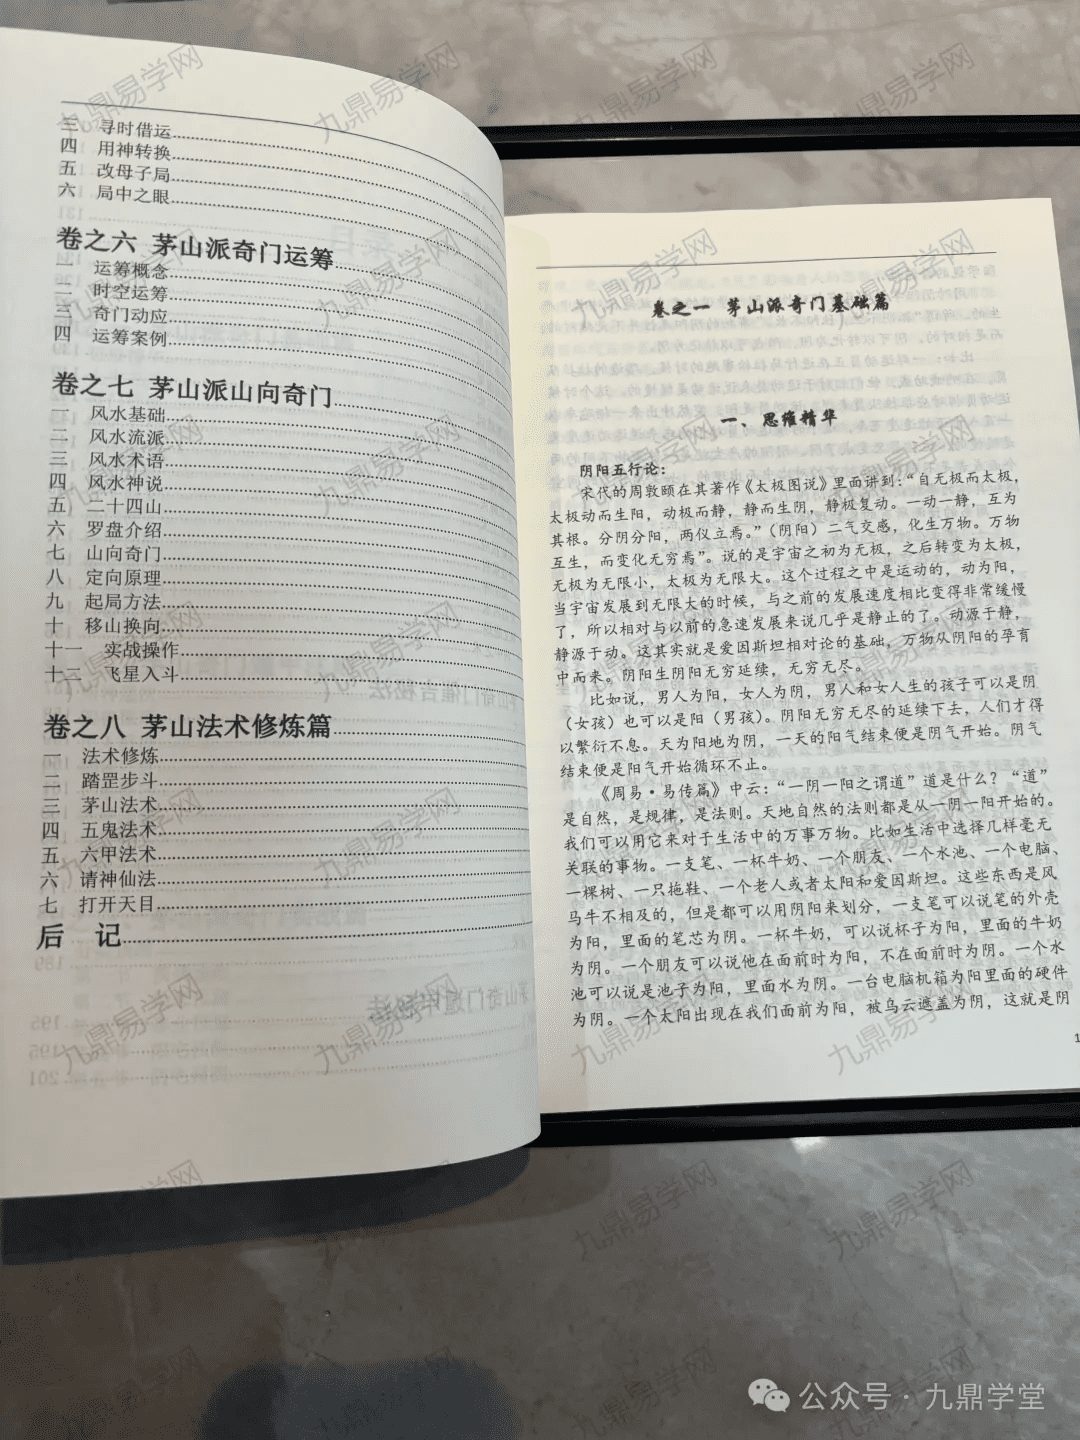 三 寻时借运
四 用神转换
五 改母子局
六 局中之眼
卷之六 茅山派奇门运筹
一 运筹概念
二 时空运筹
三 奇门动应
四 运筹案例
卷之七 茅山派山向奇门
一 风水基础
二 风水流派
三 风水术语
四 风水神说
五 二十四山
六 罗盘介绍
七 山向奇门
八 定向原理
九 起局方法
十 移山换向
十一 实战操作
十二 飞星入斗
卷之八 茅山法术修炼篇
一 法术修炼
二 踏罡步斗
三 茅山法术
四 五鬼法术
五 六甲法术
六 请神仙法
七 打开天目
后 记
卷之一 茅山派奇门基础篇
一、思维精华
阴阳五行论：
宋代的周敦颐在其著作《太极图说》里面讲到：“自无极而太极，
太极动而生阳，动极而静，静而生阴，静极复动。一动一静，互为
其根。分阴分阳，两仪立焉。”（阴阳）二气交感，化生万物。万物
互生，而变化无穷焉”。说的是宇宙之初为无极，之后转变为太极，
无极为无限小，太极为无限大。这个过程之中是运动的，动为阳，
当宇宙发展到无限大的时候，与之前的发展速度相比变得非常缓慢
了，所以相对与以前的急速发展来说几乎是静止的了。动源于静，
静源于动。这其实就是爱因斯坦相对论的基础，万物从阴阳的孕育
中而来。阴阳生阴阳无穷延续，无穷无尽。
比如说，男人为阳，女人为阴，男人和女人生的孩子可以是阴
（女孩）也可以是阳（男孩）。阴阳无穷无尽的延续下去，人们才得
以繁衍不息。天为阳地为阴，一天的阳气结束便是阴气开始。阴气
结束便是阳气开始循环不止。
《周易·易传篇》中云：“一阴一阳之谓道”道是什么？“道”
是自然，是规律，是法则。天地自然的法则都是从一阴一阳开始的。
我们可以用它来对于生活中的万事万物。比如生活中选择几样毫无
关联的事物。一支笔、一杯牛奶、一个朋友、一个水池、一个电脑、
一棵树、一只拖鞋、一个老人或者太阳和爱因斯坦。这些东西是风
马牛不相及的，但是都可以用阴阳来划分，一支笔可以说笔的外壳
为阳，里面的笔芯为阴。一杯牛奶，可以说杯子为阳，里面的牛奶
为阴。一个朋友可以说他在面前时为阳，不在面前时为阴。一个水
池可以说是池子为阳，里面水为阴。一台电脑机箱为阳里面的硬件
为阴。一个太阳出现在我们面前为阳，被乌云遮盖为阴，这就是阴
1
九鼎易学网
公众号·九鼎学堂